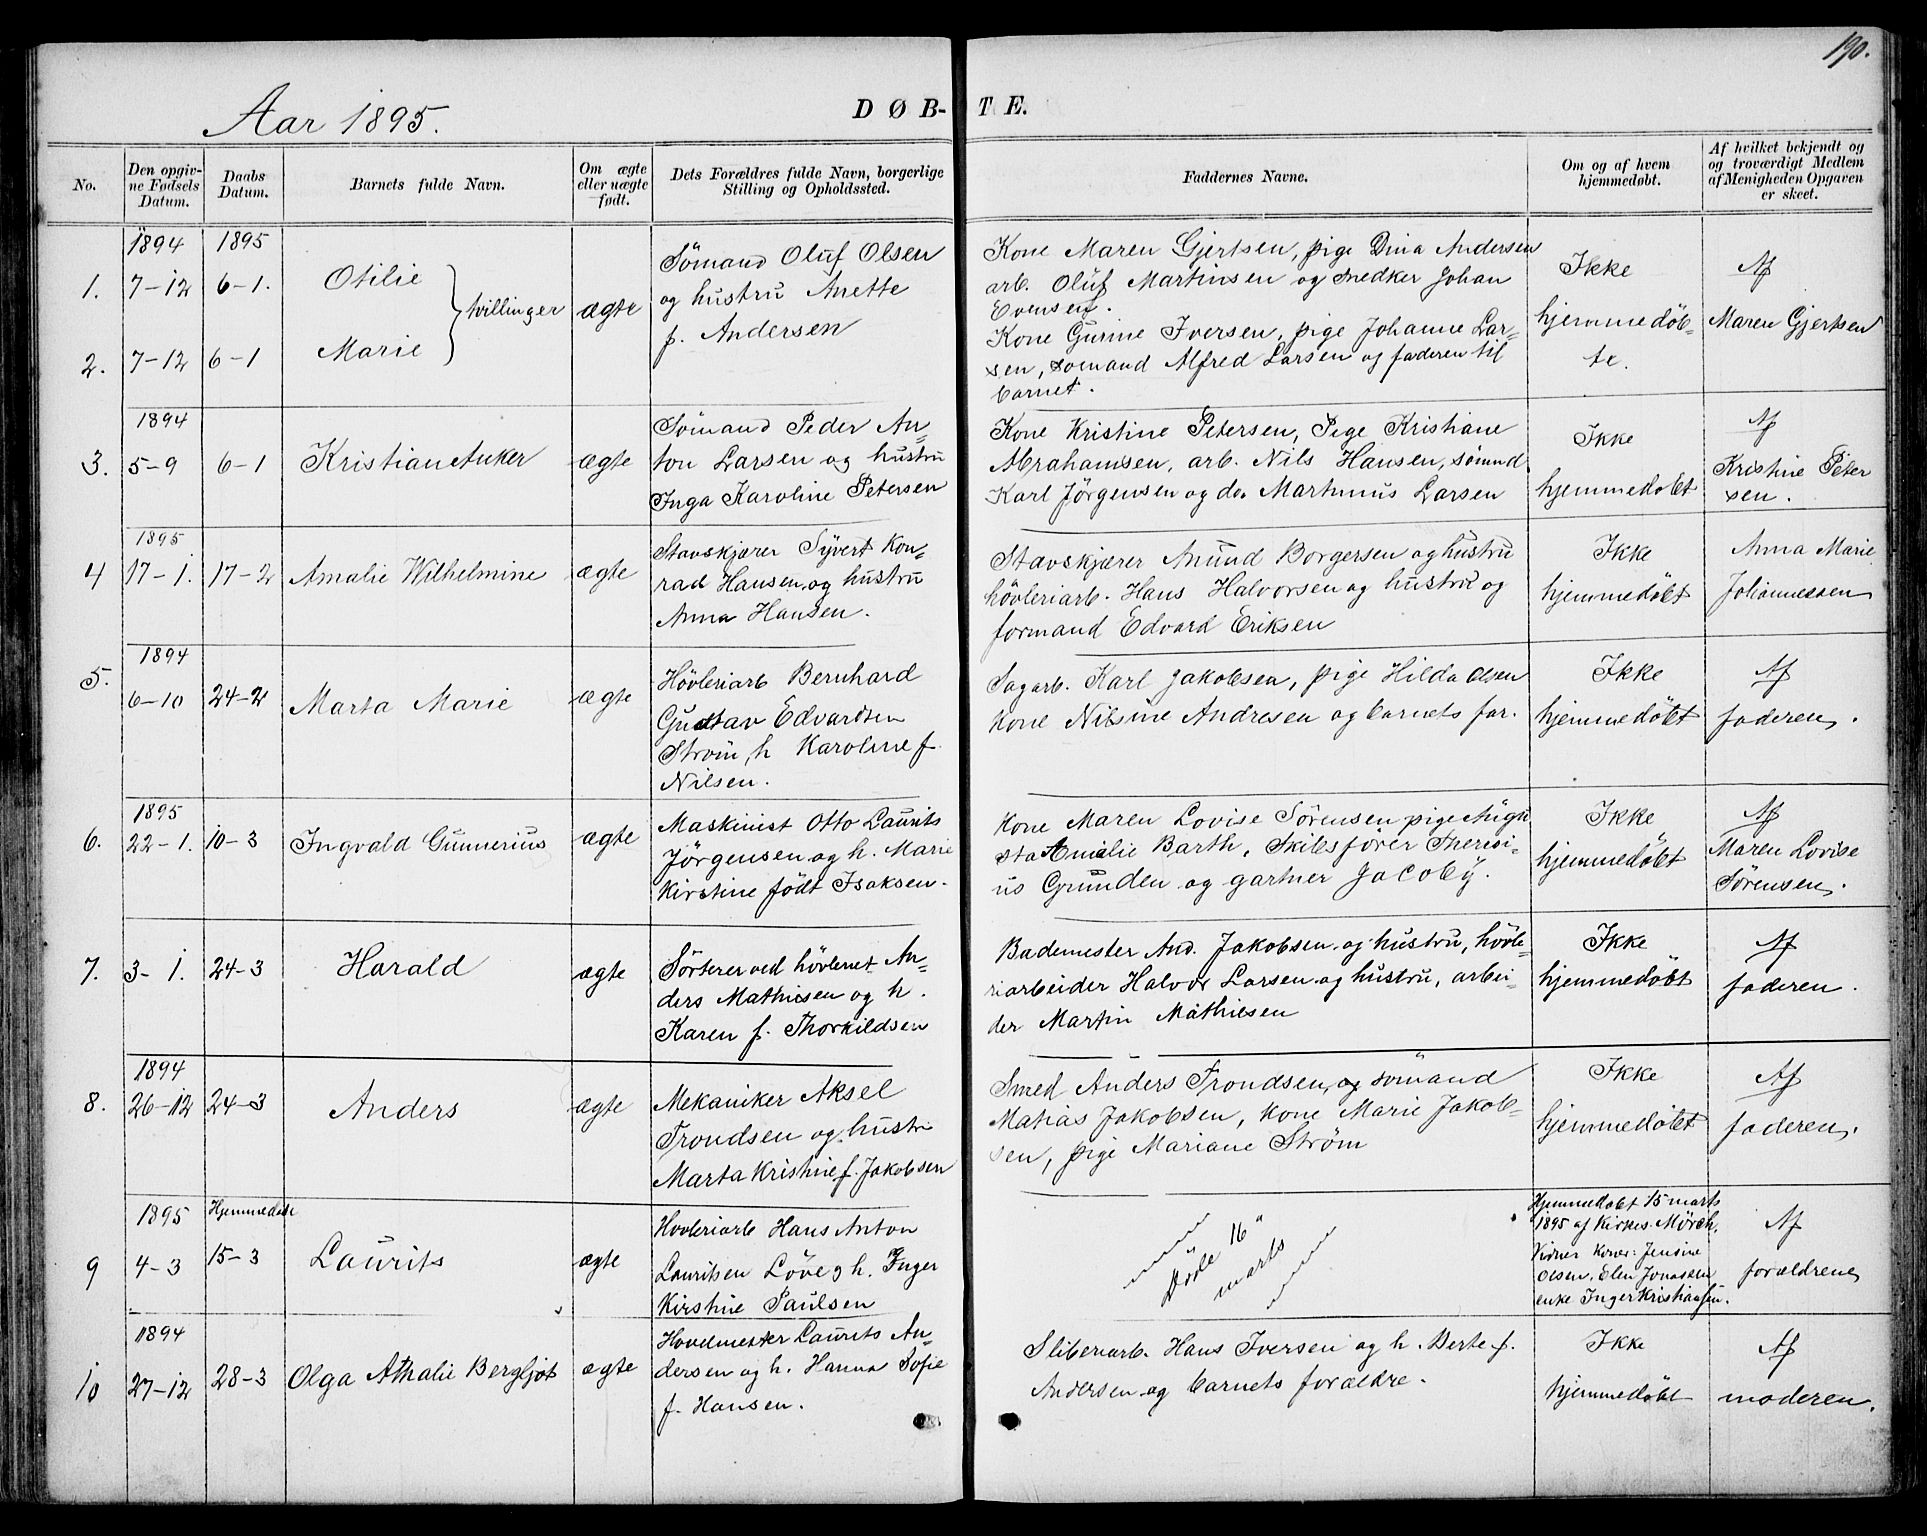 190.
Aar 1895.
DØB-TE.
No.
Den opgiv-
ne Fødsels
Datum.
Daabs
Datum.
Barnets fulde Navn.
Om ægte
eller uægte
født.
Dets Forældres fulde Navn, borgerlige
Stilling og Opholdssted.
Faddernes Navne.
Om og af hvem
hjemmedøbt.
Af hvilket bekjendt og
og troværdigt Medlem
af Menigheden Opgaven
er skeet.
1894 1895
1. 7-12 6-1. Otilie
2. 7-12 6-1 Marie
tvillinger
ægte
Sømand Oluf Olsen
og hustru Anette
f. Andersen
Kone Maren Gjertsen, pige Dina Andersen
arb. Oluf Martinsen og snedker Johan
Evensen.
Kone Gunine Iversen, pige Johanne Lar-
sen, sømand Alfred Larsen og faderen til
barnet.
Ikke
hjemmedøb-
te.
Af
Maren Gjertsen
1894
3. 5-9 6-1 Kristian Anker ægte
Sømand Peder An-
ton Larsen og hustru
Inga Karoline Petersen
Kone Kristine Petersen, Pige Kristiane
Abrahamsen, arb. Nils Hansen, sømnd.
Karl Jörgensen og do. Martinius Larsen
Ikke
hjemmedøbt
Af
Kristine Peter
sen.
1895
4 17-1. 17-2 Amalie Wilhelmine ægte
Stavskjærer Syvert Kon-
rad Hansen og hustru
Anna Hansen.
Stavskjærer Anund Borgersen og hustru
hövleriarb. Hans Halvorsen og hustru og
formand Edvard Eriksen
Ikke
hjemmedøbt
Anna Marie
Johannessen
1894
5. 6-10 24-2 Marta Marie ægte
Hövleriarb Bernhard
Gustav Edvardsen
Strøm, h Karoline f.
Nilsen.
Sagarb. Karl Jakobsen, pige Hilda Olsen
Kone Nilsine Andresen og barnets far.
Ikke
hjemmedøbt
Af
faderen.
1895
6. 22-1. 10-3 Ingvald Gunnerius ægte
Maskinist Otto Laurits
Jörgensen og h. Marie
Kirstine født Isaksen.
Kone Maren Lovise Sörensen pige Augu
sta Amalie Barth, Skibsfører Therisi-
us Grunden og gartner Jacoby.
Ikke
hjemmedøbt
Af
Maren Lovise
Sørensen.
7. 3-1. 24-3 Harald ægte
Sörterer ved hövleriet An-
ders Mathisen og h.
Karen f. Thorkildsen
Bademester And. Jakobsen og hustru, hövle-
riarbeider Halvor Larsen og hustru, arbei-
der Martin Mathiesen
Ikke
hjemmedøbt
Af
faderen.
1894
8. 26-12 24-3 Anders ægte
Mekaniker Aksel
Trondsen og hustru
Marta Kristine f. Jakobsen
Smed Anders Trondsen, og sømand
Matias Jakobsen, kone Marie Jakob-
sen, pige Mariane Strøm
Ikke
hjemmedøbt
Af
faderen.
1895 Hjemmedøbt
9 4-3 15-3 Laurits ægte
Hövleriarb Hans Anton
Lauritsen Löve og h. Inger
Kirstine Paulsen
Døde 16
marts
Hjemmedøbt 15 marts
1895 af Kirkes. Mørch.
Vidner Koner: Jensine
Olsen, Elen Jonassen
enke Inger Kristiansen.
Af
forældrene
1894
10 27-12 28-3 Olga Athalie Bergljot ægte
Hovedmester Laurits An-
dersen og h. Hanna Sofie
f. Hansen.
Sliberiarb. Hans Iversen og h. Berte f.
Andersen og barnets forældre.
Ikke
hjemmedøbt
Af
moderen.